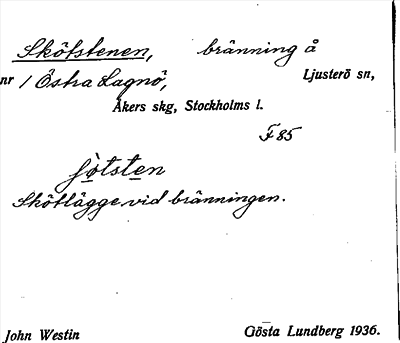 Skötstenen, bränning å
nr 1 Östra Lagnö, Ljusterö sn,
Åkers skg, Stockholms l.
F 85
Skötlägge vid bränningen.
John Westin Gösta Lundberg 1936.